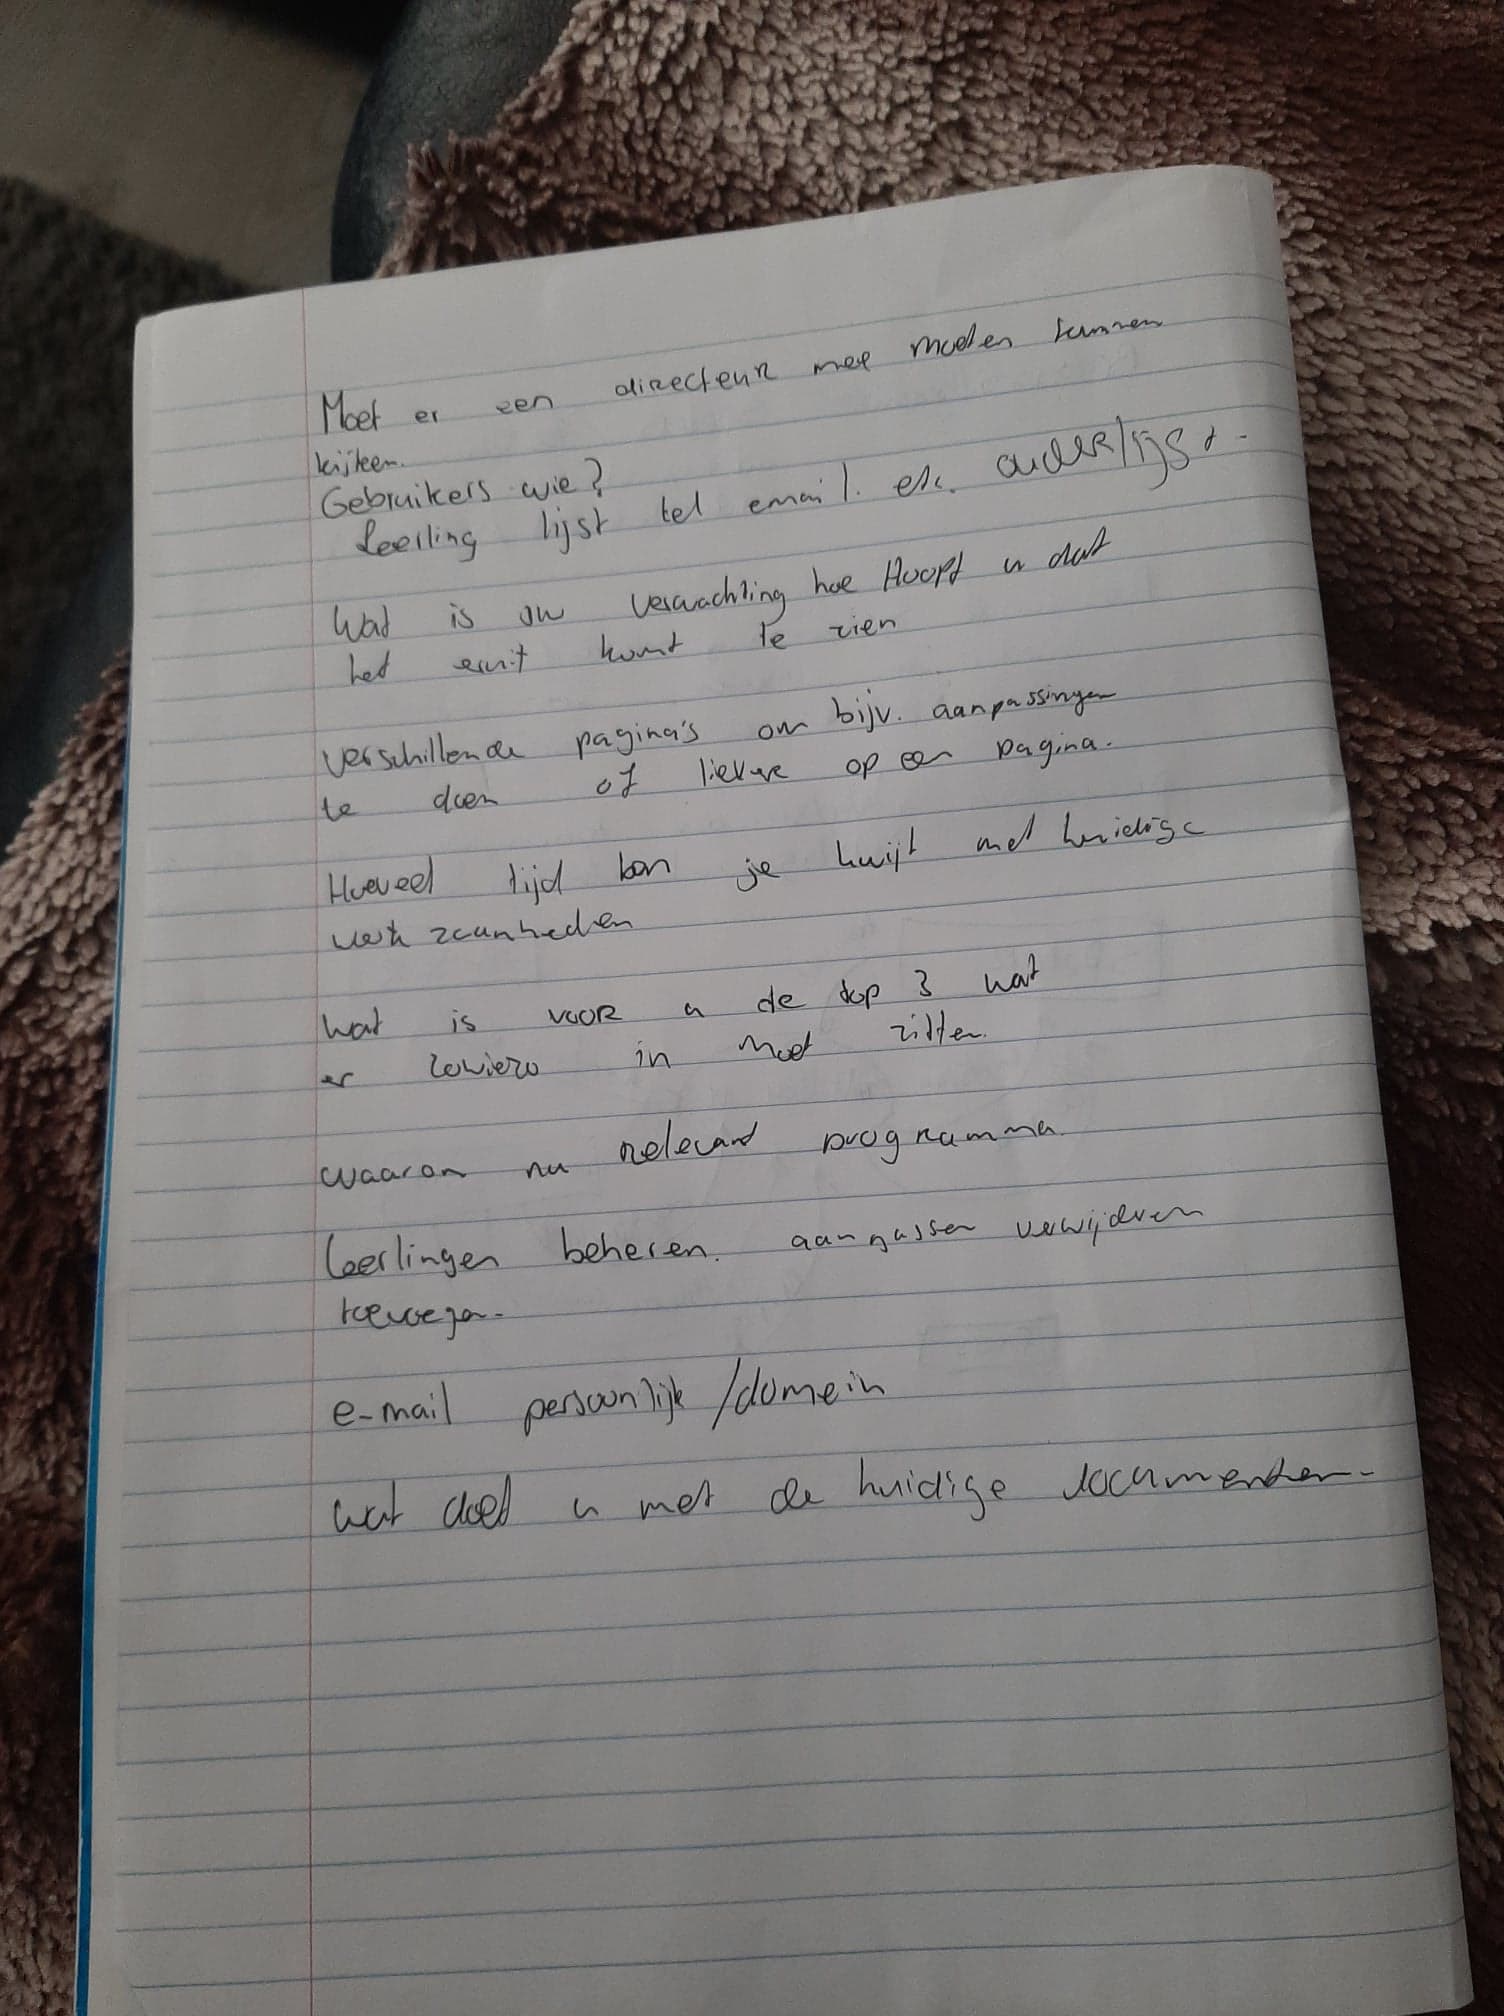 Moet er een directeur mee moeten kunnen
kijken.
Gebruikers wie?
Leerling lijst tel email. etc. ouderlijst.
Wat is uw verwachting hoe Hoopt u dat
het eruit komt te zien
verschillende pagina's om bijv. aanpassingen
te doen of lieverr op een pagina.
Hoeveel tijd ben je kwijt met huidige
werkzaamheden
wat is voor u de top 3 wat
er sowieso in moet zitten.
waarom nu relevant programma
leerlingen beheren. aanpassen verwijderen
toevoegen.
e-mail persoonlijk /domein
wat doet u met de huidige documenten.